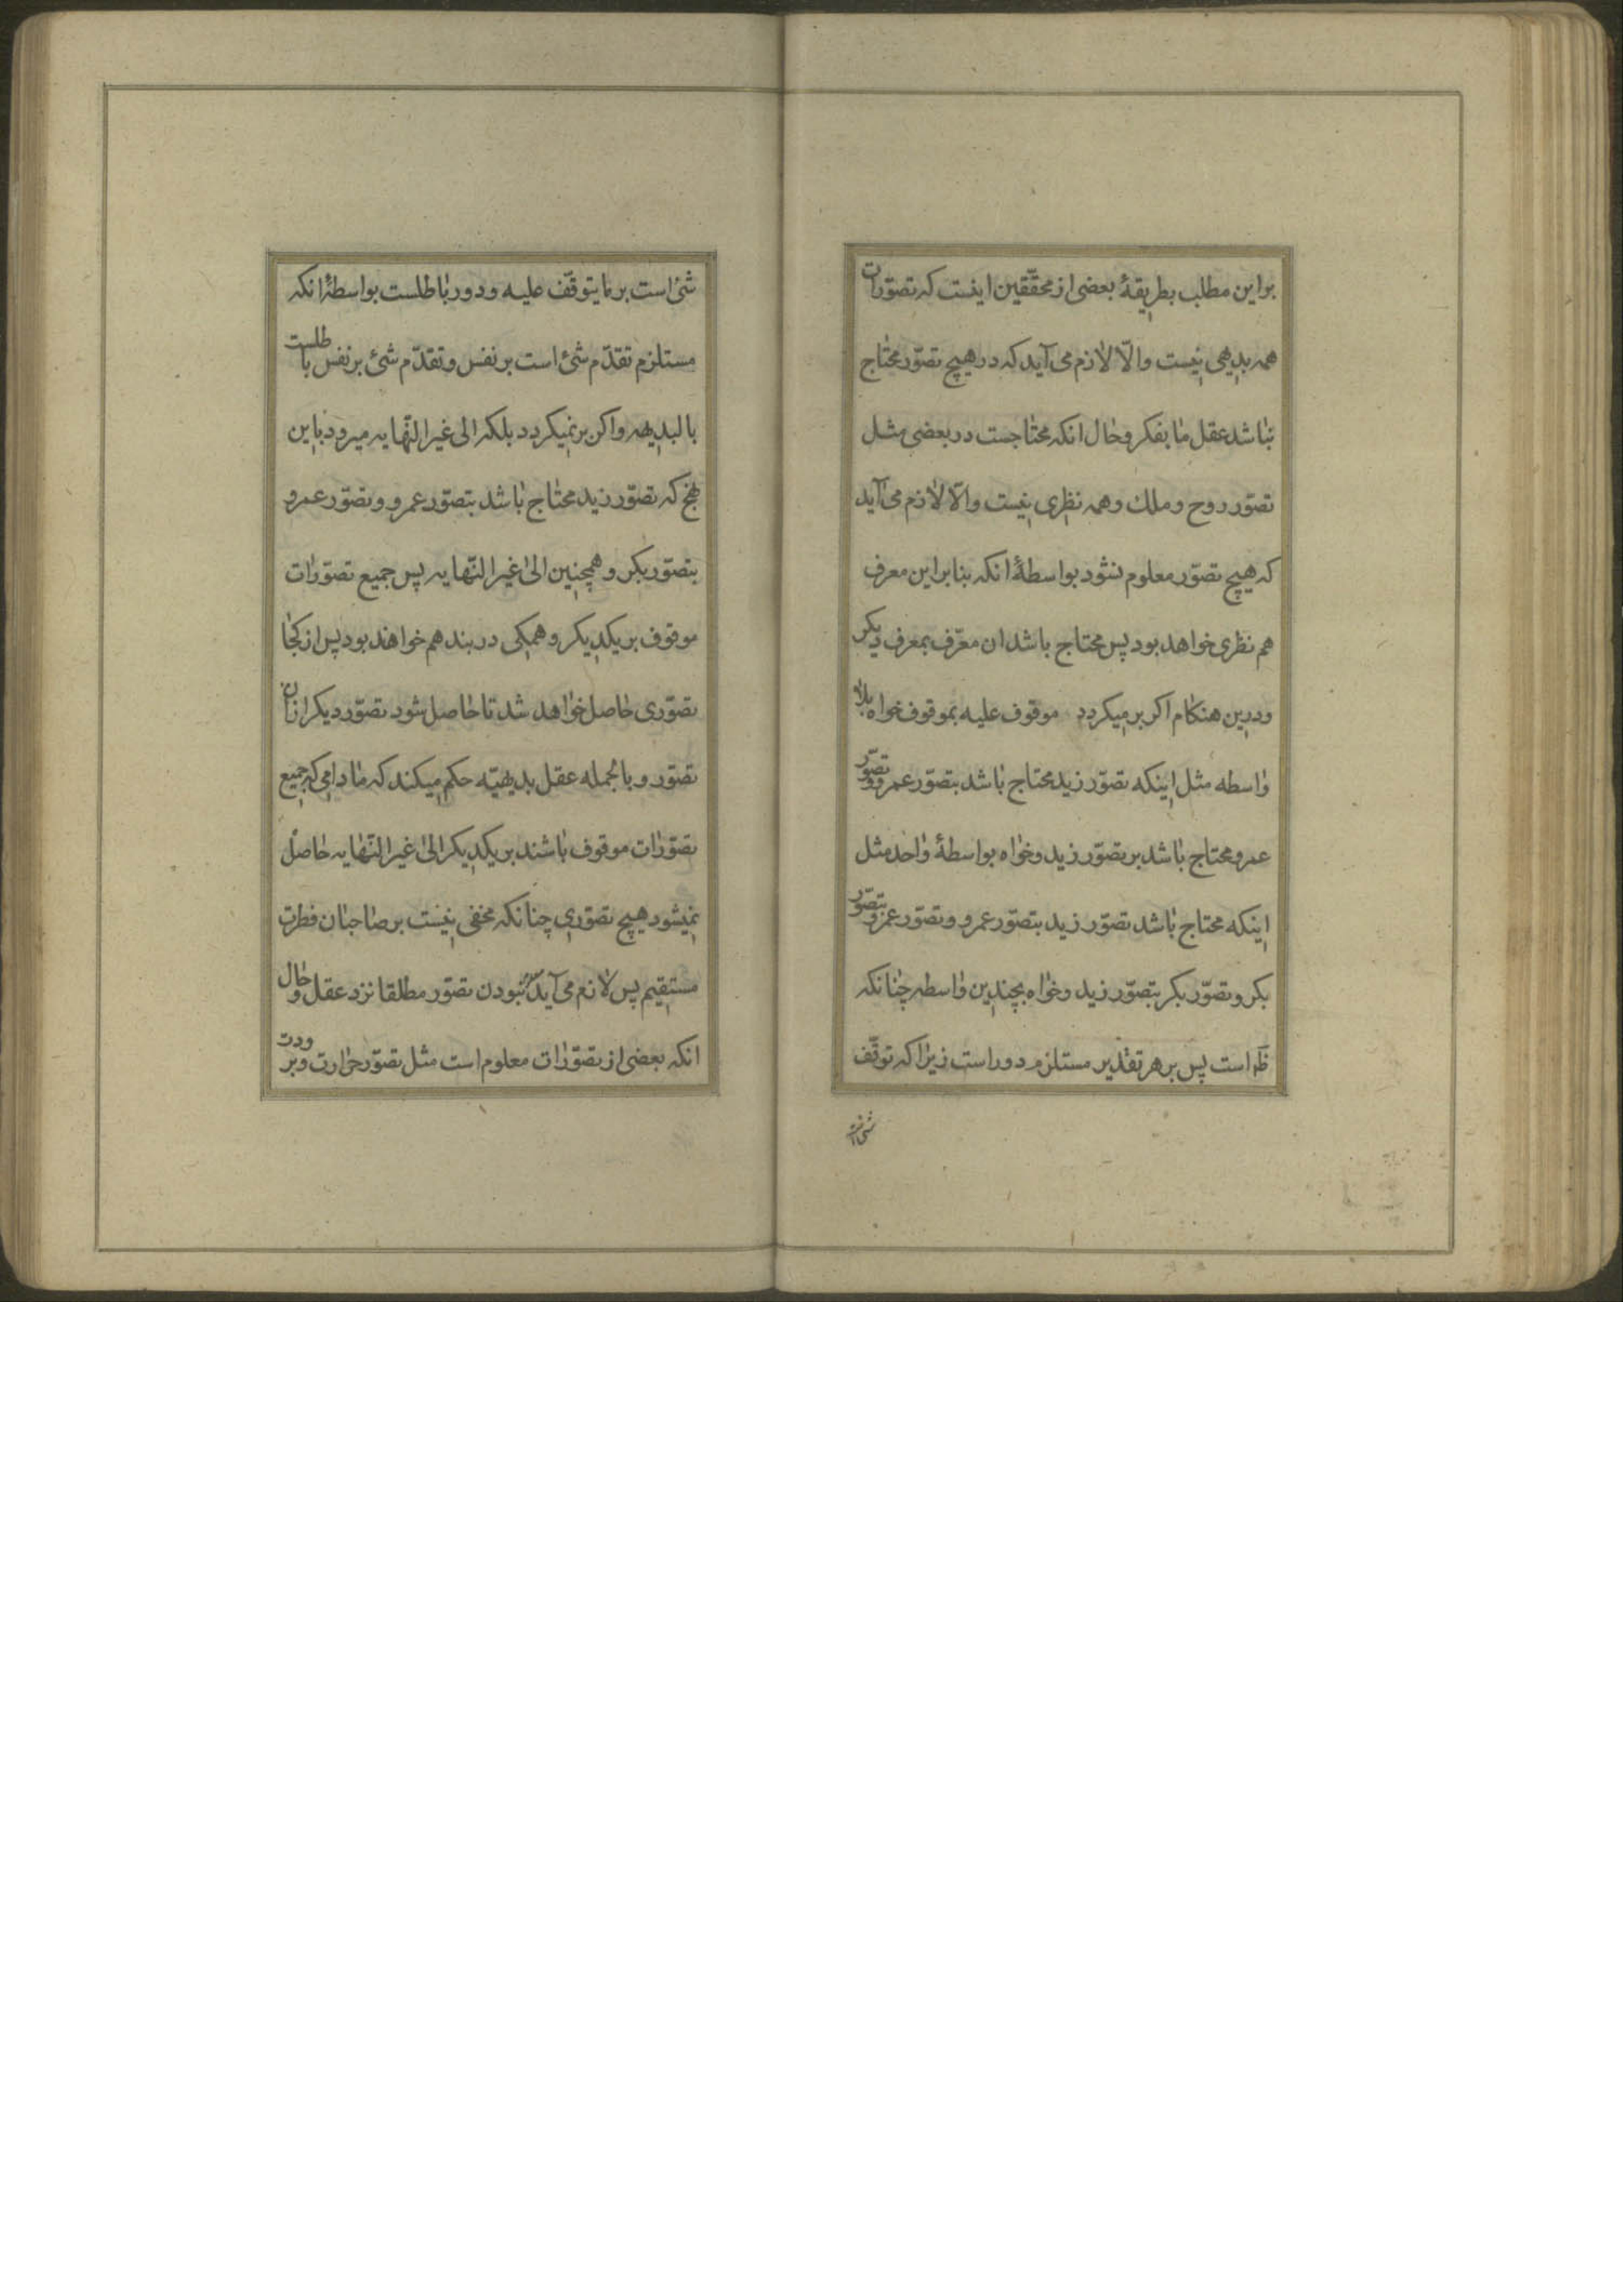 براین مطلب بطریقهٔ بعضی از محقّقین اینست که تصوّرات
همه بدیهی نیست والّا لازم می‌آید که در هیچ تصوّر محتاج
نباشد عقل ما بفکر و حال انکه محتاجست در بعضی مثل
تصوّر روح و ملک و همه نظری نیست والّا لازم می‌آید
که هیچ تصوّر معلوم نشود بواسطهٔ انکه بنابراین معرف
هم نظری خواهد بود پس محتاج باشد ان معرّف بمعرف دیکر
ودرین هنکام اکر برمیکردد موقوف علیه بموقوف خواه بلا
واسطه مثل اینکه تصوّر زید محتاج باشد بتصوّر عمرو و تصوّر
عمرو محتاج باشد بر تصوّر زید و خواه بواسطهٔ واحد مثل
اینکه محتاج باشد تصوّر زید بتصوّر عمرو و تصوّر عمرو بتصوّر
بکر و تصوّر بکر بتصوّر زید و خواه بچندین واسطه چنانکه
ظاست پس بر هر تقدیر مستلزم دور است زیرا که توقّف
شی است
شئ است بر ما یتوقّف علیه و دور باطلست بواسطهٔ انکه
مستلزم تقدّم شئ است بر نفس و تقدّم شئ بر نفس باطلست
بالبدیهه واکر برنمیکردد بلکه الی غیر النّهایه میرود باین
نهج که تصوّر زید محتاج باشد بتصوّر عمرو و تصوّر عمرو
بتصوّر بکر و همچنین الی غیر النّهایه پس جمیع تصوّرات
موقوف بر یکدیکر و همکی در بند هم خواهند بود پس از کجا
تصوّری حاصل خواهد شد تا حاصل شود تصوّر دیکر ازان
تصوّر و بالجمله عقل بدیهیّه حکم میکند که مادامی که جمیع
تصوّرات موقوف باشند بر یکدیکر الی غیر النّهایه حاصل
نمیشود هیچ تصوّری چنانکه مخفی نیست بر صاحبان فطرت
مستقیم پس لازم می‌آید نبودن تصوّر مطلقا نزد عقل و حال
انکه بعضی از تصوّرات معلوم است مثل تصوّر حرارت و برودت